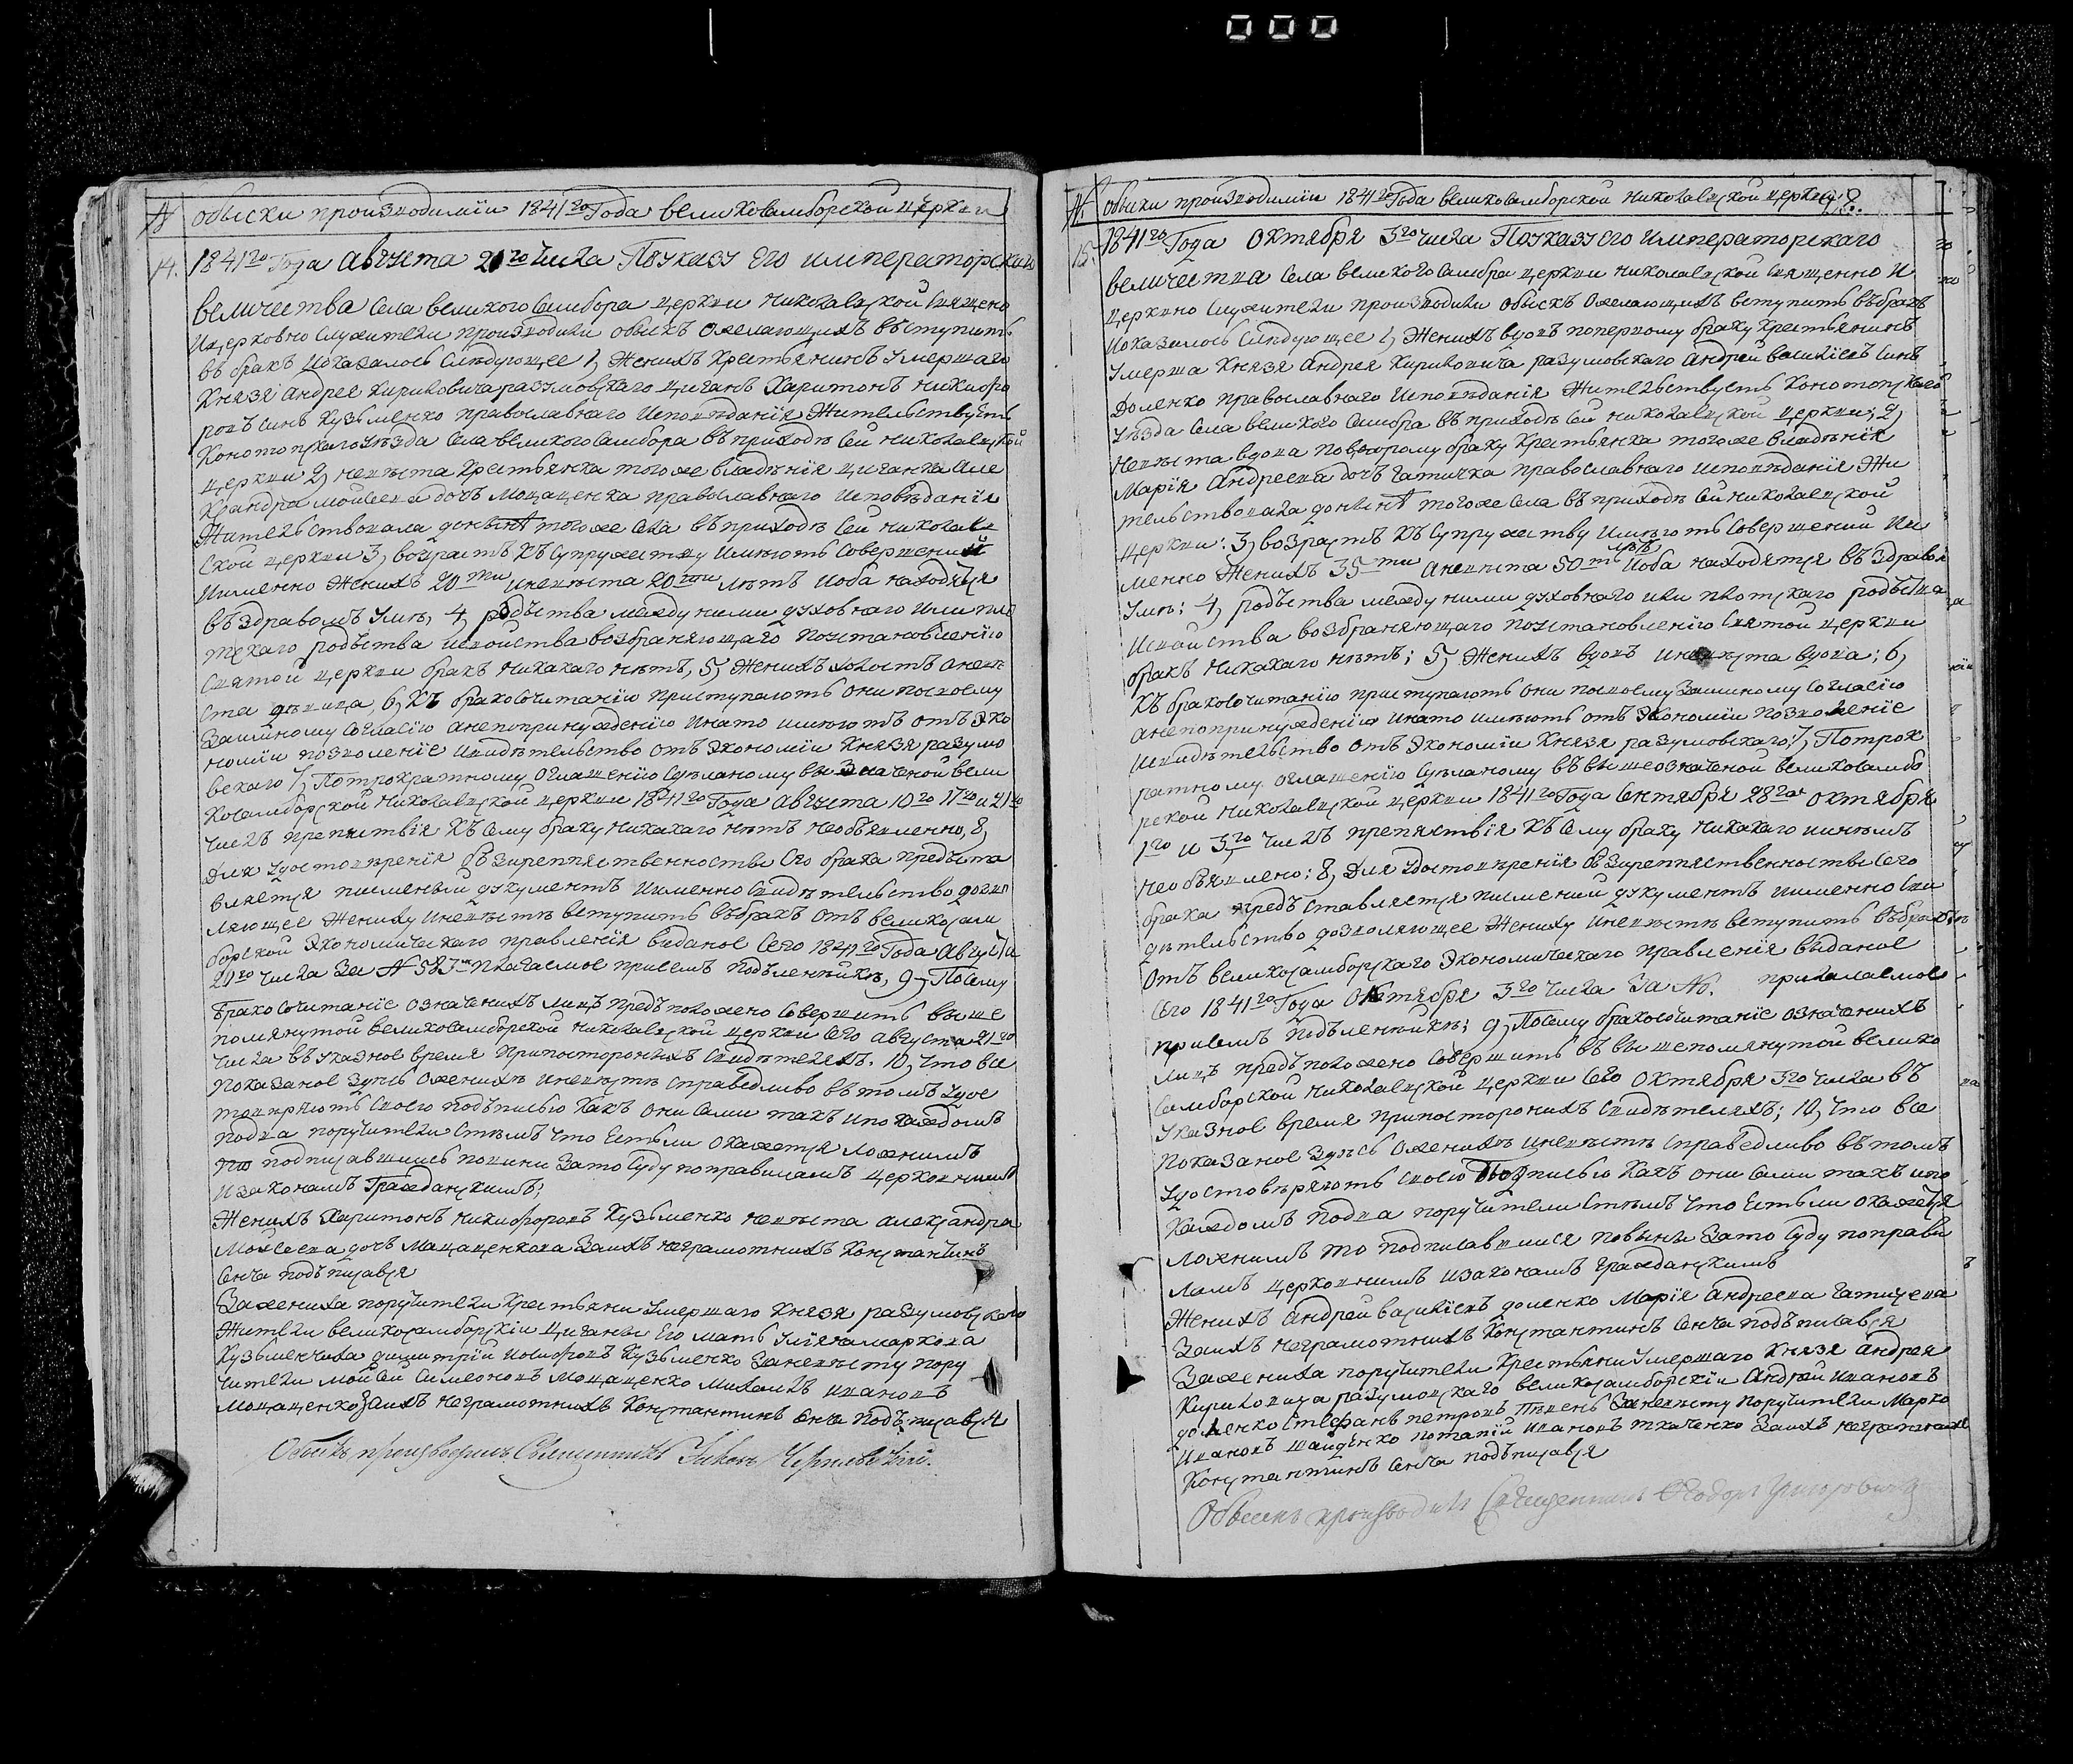 № обиски произподимїи 1841го Года великосамборской церкпи
14. 1841го Года августа 21го числа Поуказу Его императорскаго
величества Села великого Самбора церкпи николаепской Спящено
Ицерковно служители произподили обискъ ожелающихъ въступить
въ бракъ Иоказалось Слѣдующее 1, Женихъ Крестьянинъ Умершаго
Князя Андрея Кириловича разумовскаго циганъ Харитонъ никифо
ропъ Синъ Кузьменко православнаго Исповѣданїя Жительствуетъ
Конотопскаго Уѣзда Села великого Самбора въ приходѣ Сей николаепской
церкпи 2, непѣста Крестьянка тогоже владѣнїя циганка Але
Ксандра моисеепа дочъ Мацаценка православнаго исповѣданїя
Жительствопала донынѣ тогоже Села въ приходѣ Сей николаеп
ской церкпи 3, возрастъ Къ Супружестпу имѣютъ Совершений
Иименно Женихъ 20ти Инепѣста 20ти лѣтъ Иоба находятся
въ здравомъ Умѣ, 4, родъства между ними духовнаго или пло
тскаго родъства испойства возбраняющаго поустановленїю
Спятой церкпи бракъ никакаго нѣтъ, 5, Женихъ холостъ Анепѣ
ста дѣпица, 6, Къ бракосочитанїю приступаютъ они поспоему
Заимному Согласїю Анепопринуженїю Инато имѣютъ отъ Эко
номїи позполенїе Испидѣтельство отъ Экономїи Князя разумо
вскаго 7, Потрократному Оглашенїю Сдѣланому вы Значеной вели
Косамборской николаепской церкпи 1841го Года августа 10го 17го и 21го
числъ препятствїя Къ Сему браку никакаго нѣтъ необъяпленно, 8,
Для Удостопѣренїя безпрепятственности Его брака предъста
вляется писменый документъ Иименно Спидѣтельство дозпо
ляющее Жениху Инепѣстѣ вступить въбракъ отъ великосам
борской Экономическаго правленїя виданое Сего 1841го Года Августа
20го числа За № 583 приемъ подълениикъ, 9, Посему
бракосочитанїе означенихъ лицъ предъположено Совершить выше
помянутой великосамборской николаепской церкпи Сего августа 21го
числа въ Указное время припосторонихъ Спидѣтеляхъ. 10, что все
показаное Здѣсь Оженихѣ Инепѣстѣ справедливо въ томъ Удос
топѣряютъ Споею подъписью Какъ они Сами такъ ипокаждомъ
подпа поручители Стѣмъ что Естьли окажется ложнимъ
то подписавшиись попини Зато Суду поправиламъ церкопнимъ
Изаконамъ Гражданскимъ;
Женихъ Харитонъ никифоропъ Кузьменко непѣста александра
Моисеепа дочъ Мацаценкопа Заихъ неграмотнихъ Константинъ
Сенча подъписався
Заженила поручители Крестьяни Умершаго Князя разумовскаго
Жители великосамборскїи цигани Его мать Улїяна маркопа
Кузьменчиха дмитрїй Иосифопъ Кузьменко Занепѣсту пору
чители мойсей Симеонопъ Мацаценко Михаилъ ипанопъ
Мацаценко Заихъ неграмотнихъ Константинъ Сенча подъписався
Обыскъ производилъ Священникъ
№. обиски произподимїи 1841го Года великосамборской николаепской церкпи
15. 1841го Года Октября 5го числа Поуказу Его Императорскаго
величестпа Села великого Самбора церкпи николаепской Спященно И
церкпно Служители произподили обискъ Ожелающихъ вступить въбракъ
Иоказалось Слѣдующее 1, Женихъ вдопъ поперпому браку Крестьянинъ
Умерша Князя Андрея Кириловича разумовскаго Андрей василїепъ Синъ
Доленко православнаго Исповѣданїя Жительствуетъ Конотопскаго
Уѣзда Села великого Самбора въ приходѣ Сей николаепской церкпи; 2,
непѣста вдопа повторому браку Крестьянка тогоже владѣнїя
Марїя Андреепа дочъ Гатичка православнаго исповѣданїя Жи
тельствопала донынѣ тогоже Села въ приходѣ Сей николаепской
церкпи: 3, возрастъ Къ Супружеству Имѣютъ Совершений Им
менно Женихъ 35ти Анепѣста 50ти лѣтъ Иоба находятся въ здравомъ
Умѣ: 4, родъства между ними духовнаго или плотскаго родъства
Испойства возбраняющаго поустановленїю Спятой церкпи
бракъ никакаго нѣтъ; 5, Женихъ вдопъ инепѣста вдопа; 6,
Къ бракосочитанїю приступаютъ они поспоему Заимному Согласїю
Анепопринужденїю Инато имѣютъ отъ Экономїи позполенїе
Испидѣтельство отъ Экономїи Князя разумовскаго; 7, Потрок
ратному Оглашенїю Сдѣланому въ вышеозначеной великосамбо
рской николаепской церкпи 1841го Года Сентября 28го Октября
1го и 5го числъ препятствїя Къ Сему браку никакаго инѣмъ
необъяплено: 8, Для Удостопѣренїя безпрепятственности Сего
брака предъставляется писмений документъ иименно Спи
дѣтельство дозполяющее Жениху Инепѣстѣ вступить въбракъ
Отъ великосамборскаго Экономическаго правленїя виданое
Сего 1841го Года Октября 3го числа За №. прилагаемое
приемъ подълениикѣ; 9, Посему бракосочитанїе означенихъ
лицъ предъположено Совершить въ вышепомянутой велико
Самборской николаепской церкпи Сего октября 5го числа въ
Указное время припосторонихъ Спидѣтеляхъ; 10, что все
показаное Здѣсь Оженихѣ Инепѣстѣ справедливо въ томъ
Удостовѣряютъ Споею Подписью Какъ они Сами такъ ипо
Каждомъ подпа поручители Стѣмъ что Естьли окажется
ложнимъ то подписавшиися повыни Зато Суду поправи
ламъ церкопнимъ Изаконамъ гражданскимъ
Женихъ Андрей василїепъ доленко Марїя Андреепа Гатицепа
Заихъ неграмотнихъ Константинъ Сенча подъписався
Заженила поручители Крестьяни Умершаго Князя Андрея
Кириловича разумопскаго великосамборскїи Андрей ипанопъ
доленко Стефанъ петропъ Занепѣсту Поручители Марко
Ипанопъ потапїй ипанопъ ткаченко Заихъ неграмотнихъ
Константинъ Сенча подъписався
Обыскъ производилъ Священникъ Ѳеодоръ Григоровичъ